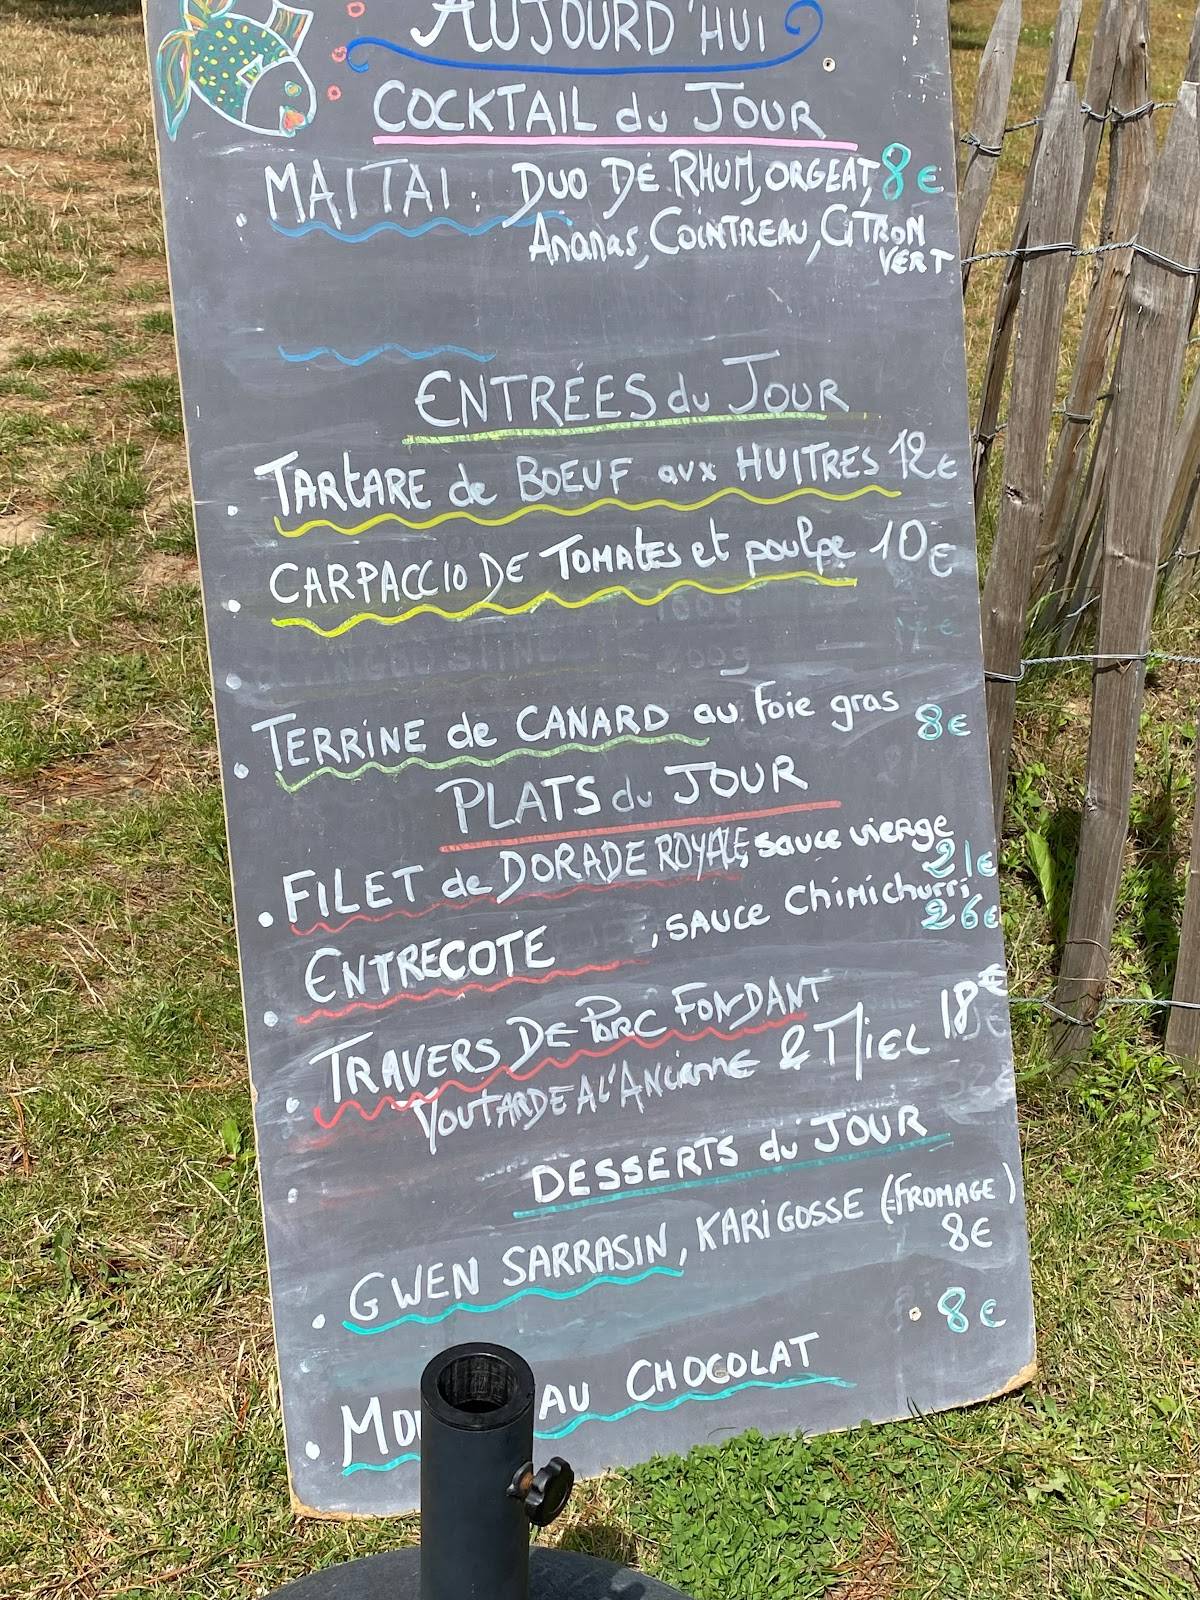 AUJOURD'HUI
COCKTAIL du JOUR
MAITAI : DUO DE RHUM, ORGEAT, 8€
Ananas, COINTREAU, CITRON
VERT
ENTRÉES du JOUR
TARTARE de BOEUF aux HUITRES 12€
CARPACCIO DE TOMATES et poulpe 10€
TERRINE de CANARD au foie gras 8€
PLATS du JOUR
FILET de DORADE ROYALE, sauce vierge
21€
ENTRECOTE , SAUCE Chimichurri
26€
TRAVERS DE PORC FONDANT 18€
MOUTARDE A L'ANCIENNE & MIEL
DESSERTS du JOUR
GWEN SARRASIN, KARI GOSSE (FROMAGE)
8€
8€
AU CHOCOLAT